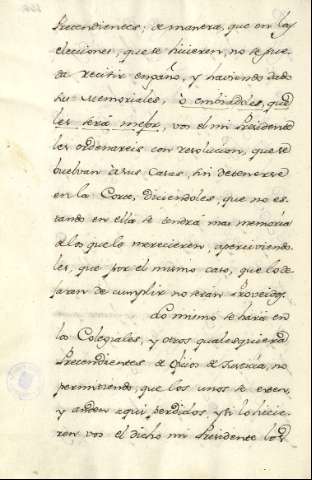 Pretendientes; de manera, que en las
elecciones, que se hicieren, no se pue-
da recivir engaño, y haviendo dado
sus Memoriales, ò embiadoles, que
les será mejor, vos el mi Presidente
les ordenareis con resolucion, que se
buelvan à sus Casas, sin detenerse
en la Corte, diciendoles, que no es-
tando en ella se tendrá mas memoria
de los que lo merecieren, aperciviendo-
les, que por el mismo caso, que lo de-
jaran de cumplir no serán Proveidos.
Lo mismo se hará en
los Colegiales, y otros qualesquiera
Pretendientes de Oficios de Justicia, no
permitiendo, que los unos se esten,
y anden aqui perdidos, y si lo hicie-
ren vos el dicho mi Presidente los